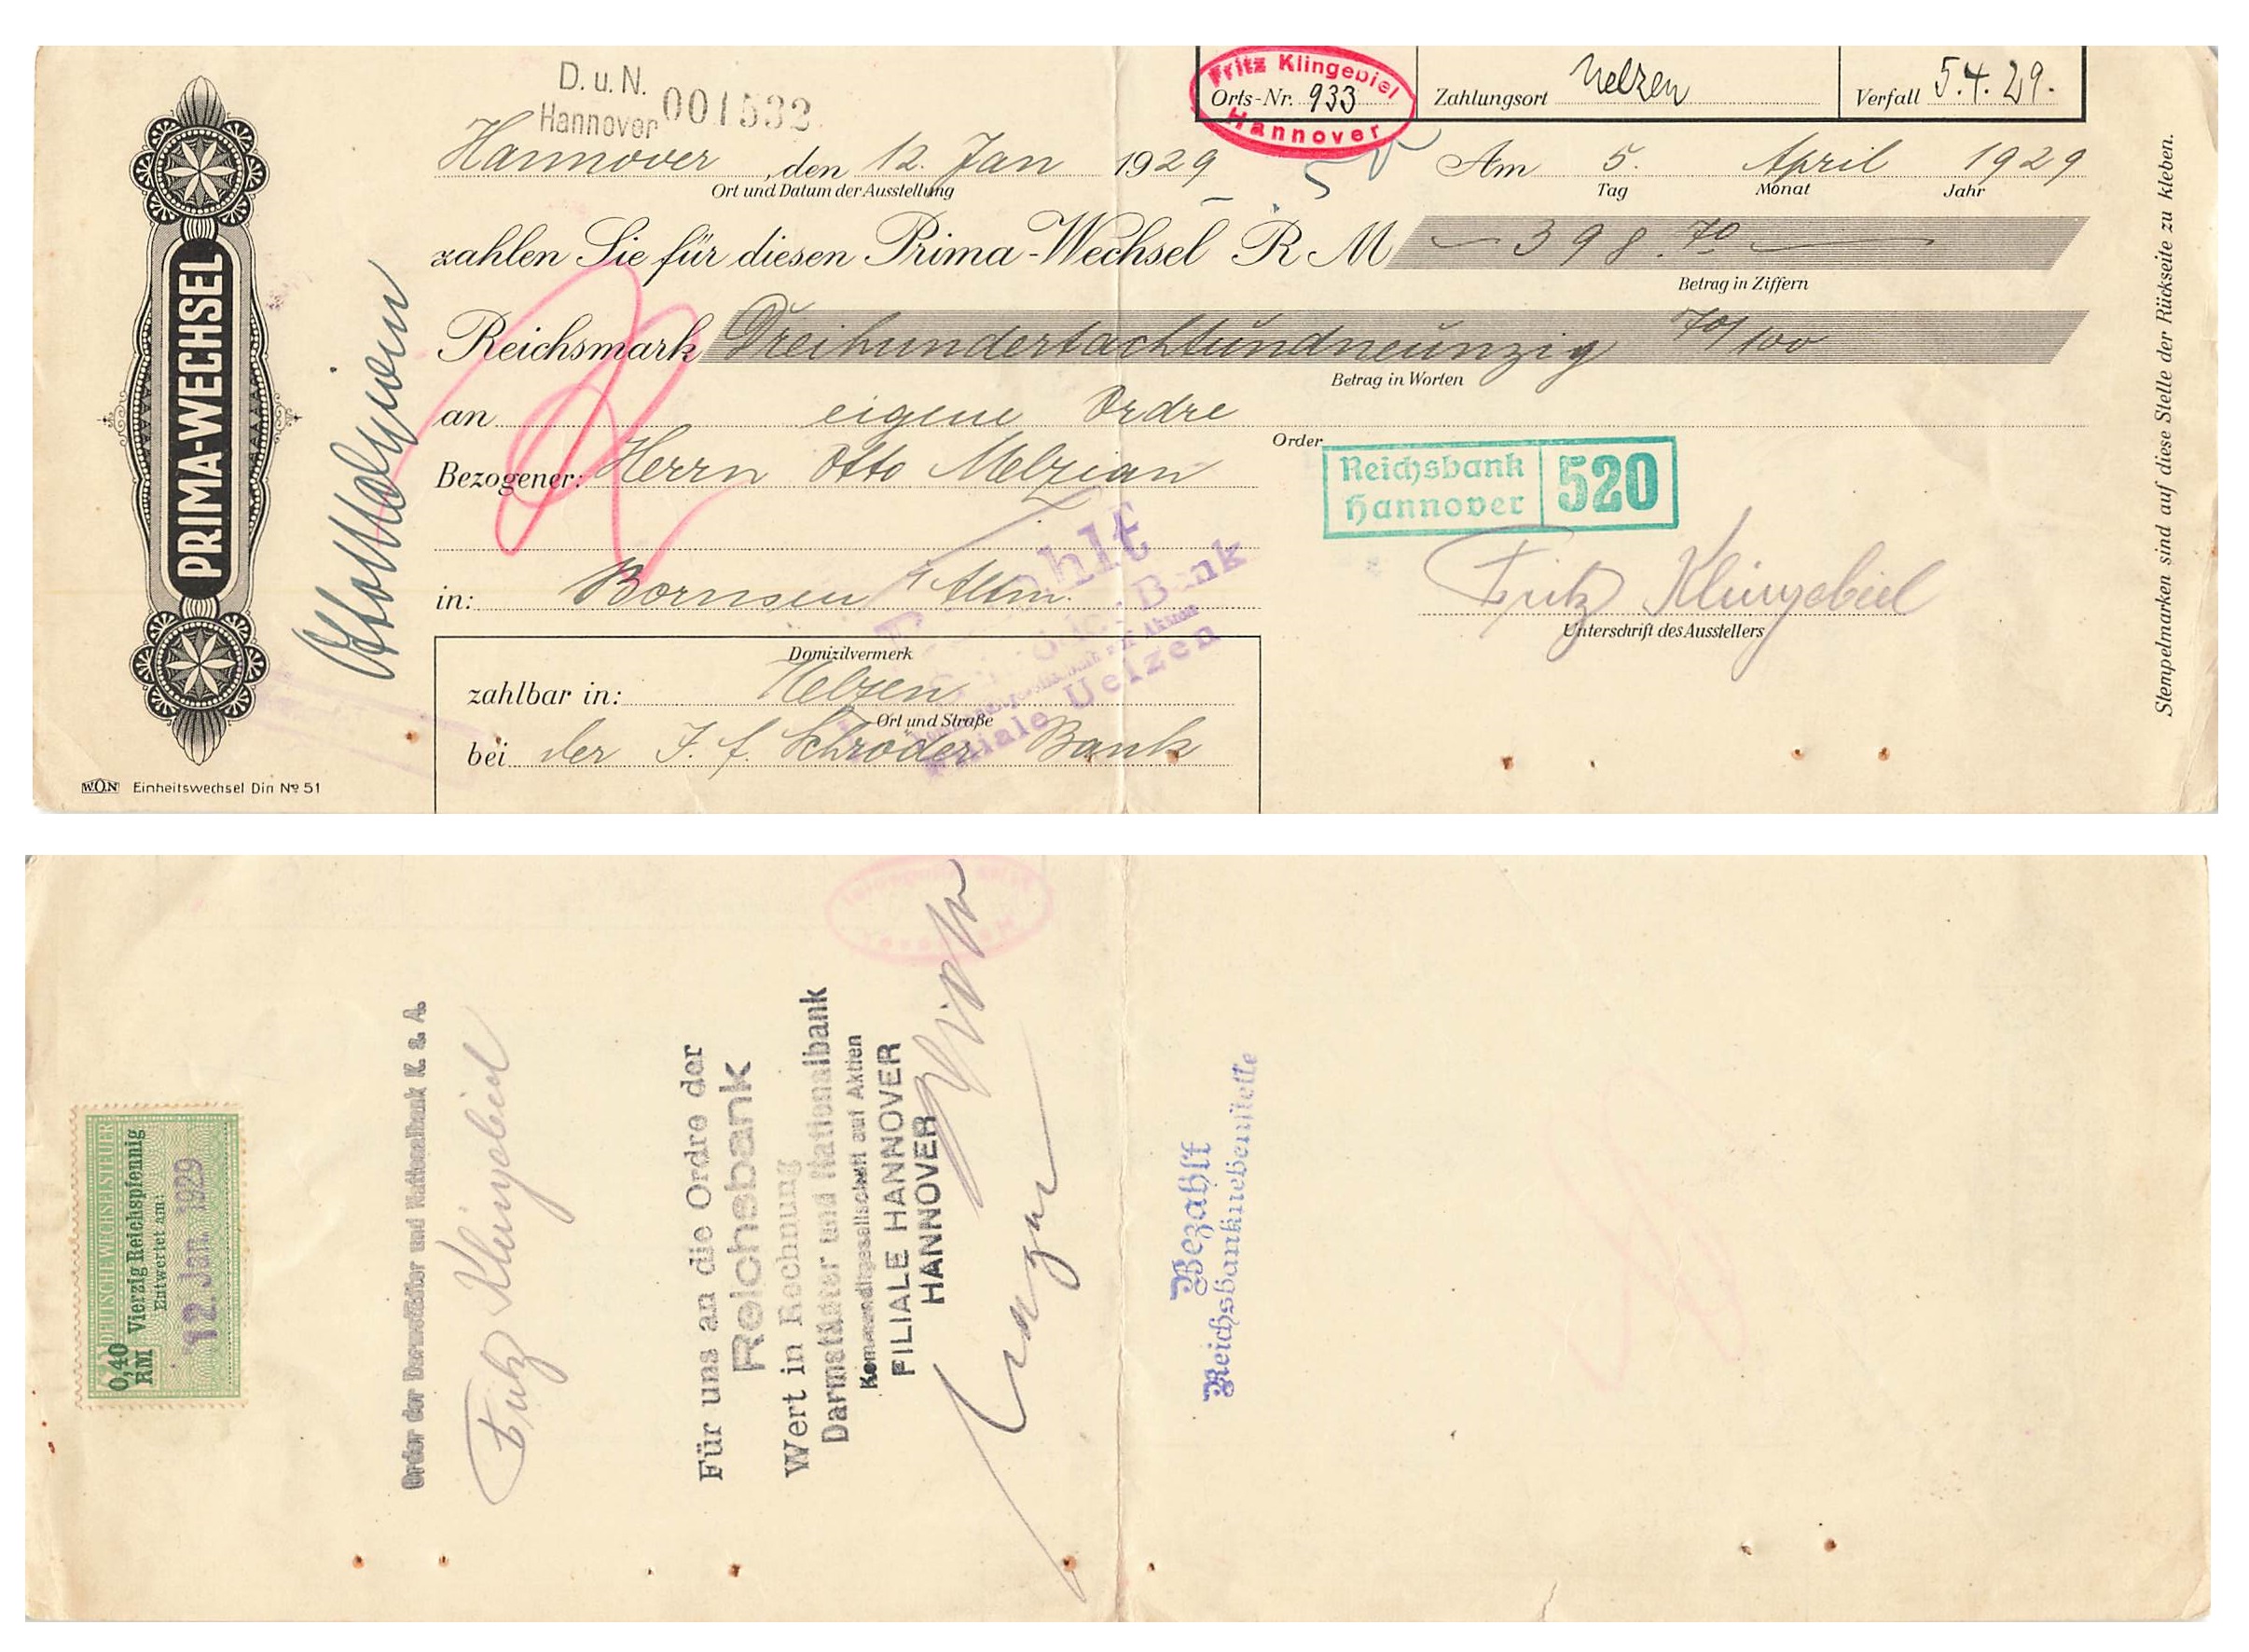 D. u. N.
Hannover 001532
Fritz Klingebiel
Hannover
Orts-Nr. 933
Zahlungsort Uelzen
Verfall 5.4.29.
Hannover, den 12. Jan 1929
Ort und Datum der Ausstellung
Am 5. April 1929
Tag Monat Jahr
zahlen Sie für diesen Prima-Wechsel RM 398.70
Betrag in Ziffern
Reichsmark Dreihundertachtundneunzig 70/100
Betrag in Worten
an eigene Ordre
Order
Bezogener: Herrn Otto Melzian
Reichsbank
Hannover 520
in: Bornsen i/Altm.
Fritz Klingebiel
Unterschrift des Ausstellers
Domizilvermerk
zahlbar in: Uelzen
Ort und Straße
bei der J. F. Schröder Bank
Filiale Uelzen
PRIMA-WECHSEL
W.O.N Einheitswechsel Din No 51
Stempelmarken sind auf diese Stelle der Rückseite zu kleben.
DEUTSCHE WECHSELSTEUER
0,40 RM Vierzig Reichspfennig
Entwertet am:
12. Jan. 1929
Order der Darmstädter und Nationalbank K. a. A.
Fritz Klingebiel
Für uns an die Ordre der
Reichsbank
Wert in Rechnung
Darmstädter und Nationalbank
Kommanditgesellschaft auf Aktien
FILIALE HANNOVER
HANNOVER
Bezahlt
Reichsbanknebenstelle